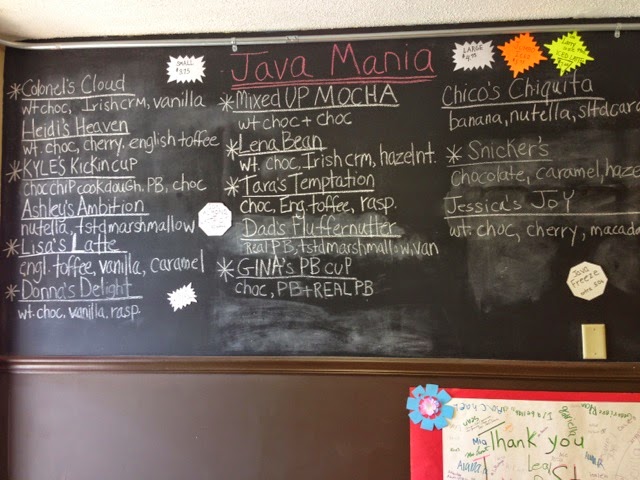 Java Mania
SMALL
LARGE
* Colonel's Cloud
wt choc, Irishcrm, vanilla
Heidi's Heaven
wt. choc, cherry, english toffee
* KYLE'S KICKIN CUP
choc chip cookdough, PB, choc
Ashley's Ambition
nutella, tstdmarshmallow
* Lisa's Latte
engl. toffee, vanilla, caramel
* Donna's Delight
wt. choc, vanilla, rasp.
* Mixed UP MOCHA
wt choc + choc
* Lena Bean
wt. choc, Irish crm, hazelnt.
* Tara's Temptation
choc, Eng. toffee, rasp.
Dad's Fluffernutter
Real PB, tstdmarshmallow, van
* GINA'S PB CUP
choc, PB + REAL PB
Chico's Chiquita
banana, nutella, sltdcara
* Snicker's
Chocolate, caramel, haze
Jessica's JOY
wt. choc, cherry, macada
Java
Freeze
Thank you
Mia
Leal